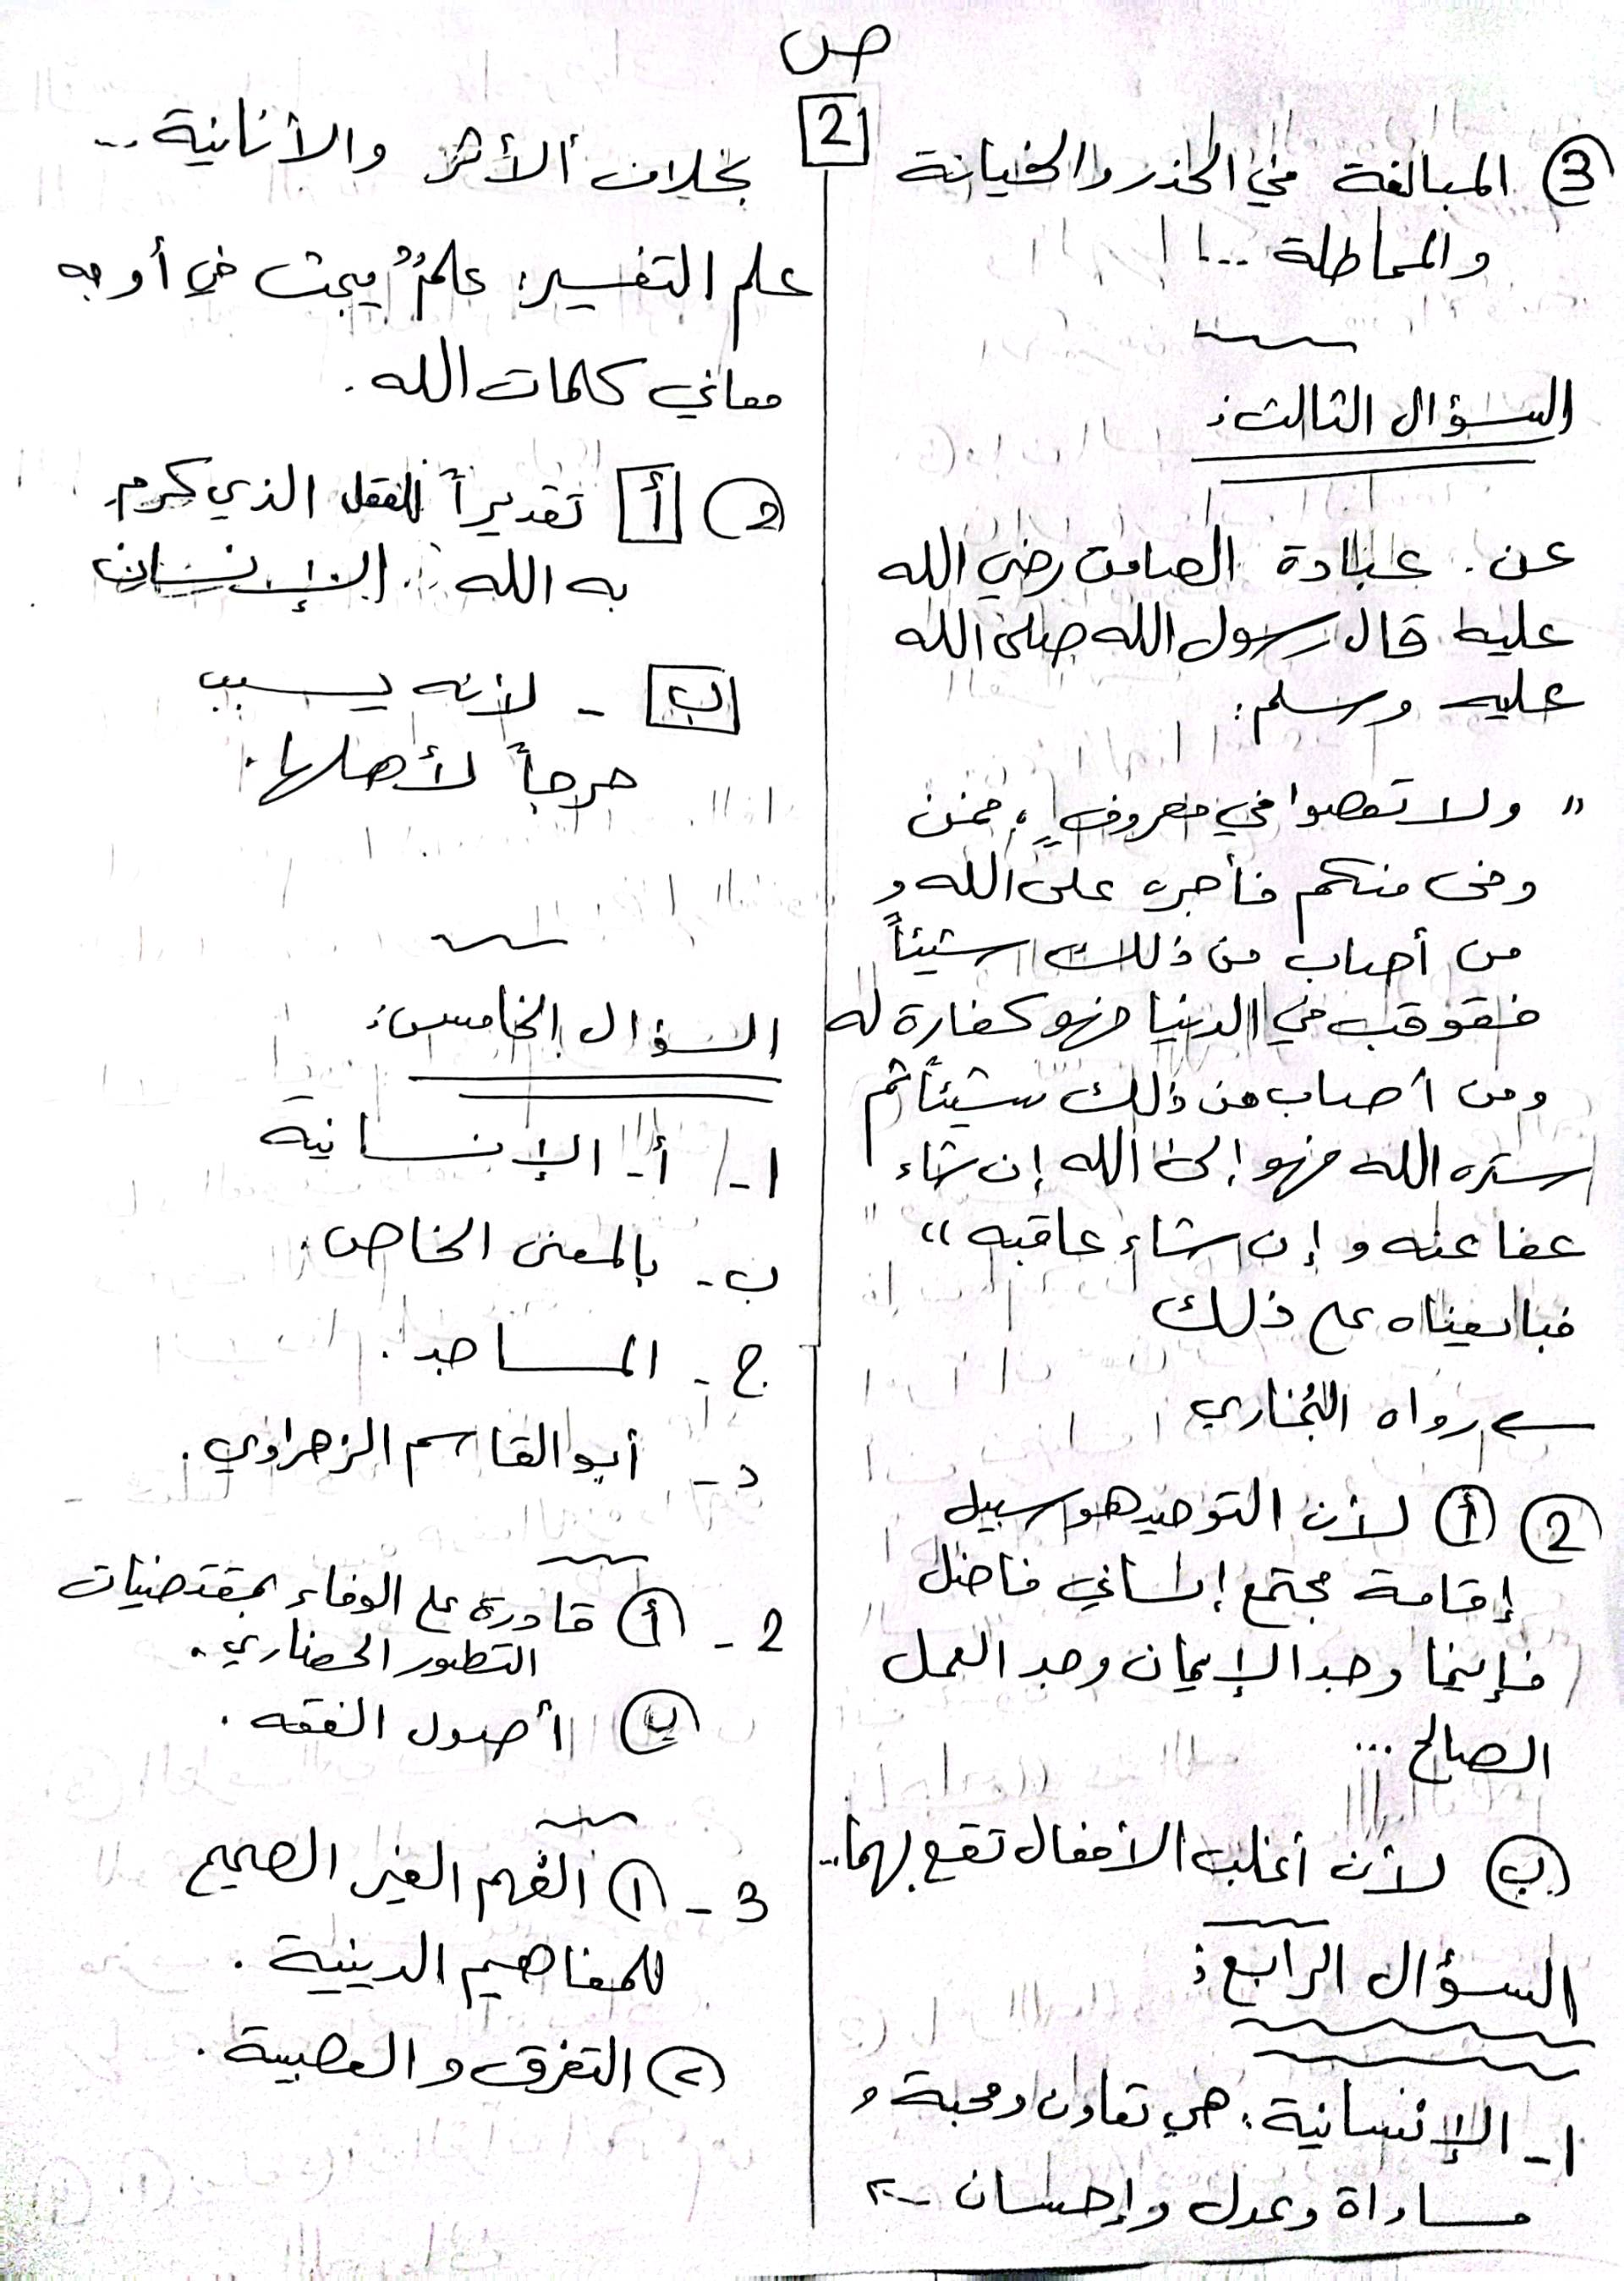 ص
2
③ المبالغة في الحذر والخيانة
والمماطلة ...
السؤال الثالث:
عن عبادة الصامت رضي الله
عليه قال رسول الله صلى الله
عليه وسلم:
" ولا تعصوا في معروفٍ، فمن
وفى منكم فأجره على الله و
من أصاب من ذلك شيئاً
فعوقب في الدنيا فهو كفارة له
ومن أصاب من ذلك شيئاً ثم
ستره الله فهو إلى الله إن شاء
عفا عنه و إن شاء عاقبه "
فبايعناه على ذلك
رواه البُخاري
② أ لأن التوحيد هو سبيل
إقامة مجتمع إنساني فاضل
فإينما وجد الإيمان وجد العمل
الصالح ...
ب لأن أغلب الأفعال تقع بهما..
السؤال الرابع:
1- الإنسانية: هي تعاون ومحبة و
مساواة وعدل وإحسان ..
بخلاف الأثر والأنانية ..
علم التفسير: علمٌ يبحث في أوجه
معاني كلمات الله.
② أ تقديراً للعقل الذي كرم
به الله الإنسان
ب - لأنه يسبب
حرجاً لأهلها.
السؤال الخامس:
1- أ- الإنسانية
ب- بالمعنى الخاص.
ج- المساجد.
د- أبو القاسم الزهراوي.
2- أ قادرة على الوفاء بمقتضيات
التطور الحضاري.
ب أصول الفقه.
3- ① الفهم الغير الصحيح
للمفاهيم الدينية.
② التفرق و العصبية.